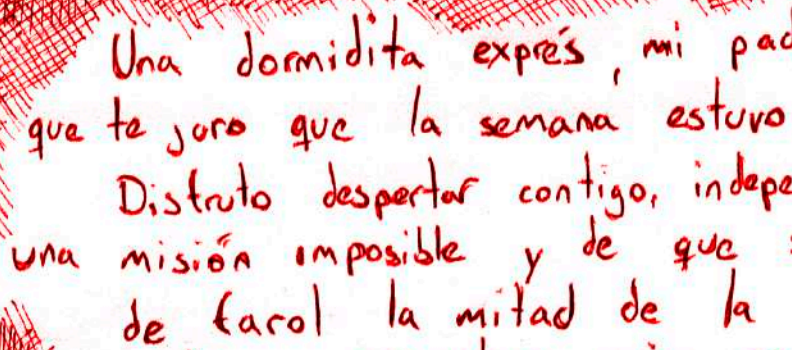 Una dormidita exprés, mi pad
que te juro que la semana estuvo
Disfruto despertar contigo, indepe
una misión imposible y de que
de farol la mitad de la